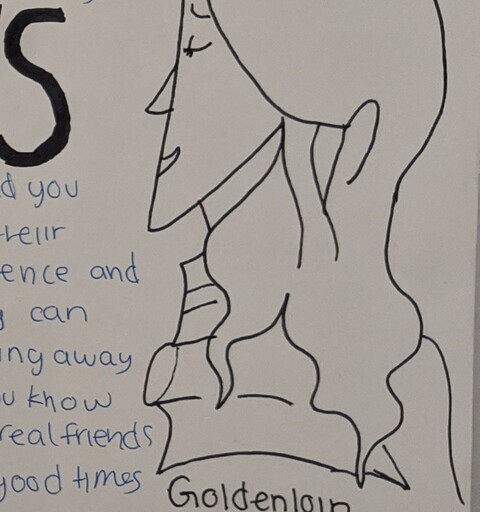 S
d you
their
ence and
g can
ing away
u know
real friends
good times
Goldenloin